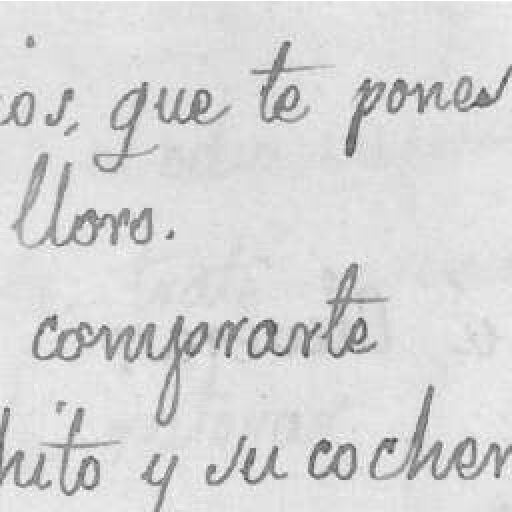 ios, que te pones
lloro.
comprarte
hito y su cocher